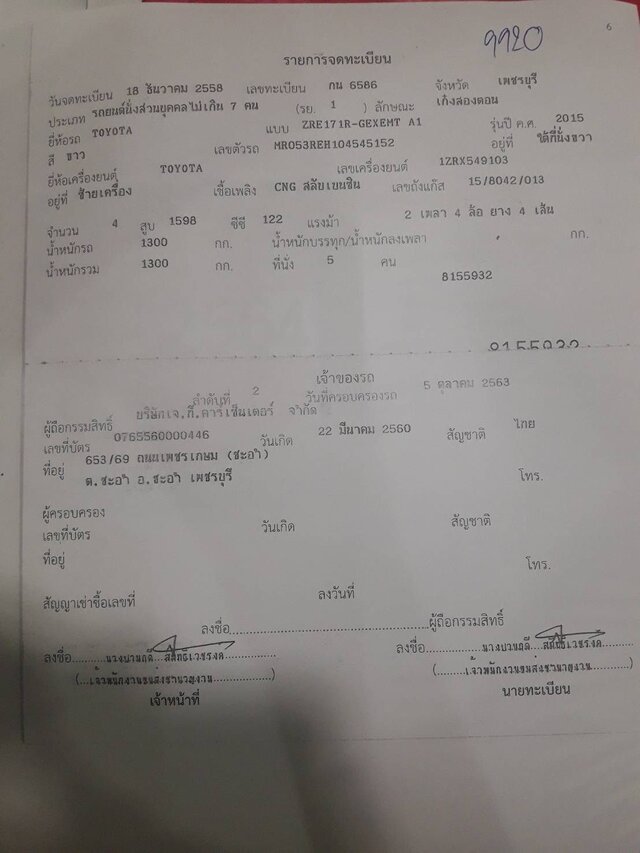 9920
6
รายการจดทะเบียน
วันจดทะเบียน 18 ธันวาคม 2558 เลขทะเบียน กน 6586 จังหวัด เพชรบุรี
ประเภท รถยนต์นั่งส่วนบุคคลไม่เกิน 7 คน (รย. 1 ) ลักษณะ เก๋งสองตอน
ยี่ห้อรถ TOYOTA แบบ ZRE171R-GEXEMT A1 รุ่นปี ค.ศ. 2015
สี ขาว เลขตัวรถ MR053REH104545152 อยู่ที่ ใต้ที่นั่งขวา
ยี่ห้อเครื่องยนต์ TOYOTA เลขเครื่องยนต์ 1ZRX549103
อยู่ที่ ซ้ายเครื่อง เชื้อเพลิง CNG สลับเบนซิน เลขถังแก๊ส 15/8042/013
จำนวน 4 สูบ 1598 ซีซี 122 แรงม้า 2 เพลา 4 ล้อ ยาง 4 เส้น
น้ำหนักรถ 1300 กก. น้ำหนักบรรทุก/น้ำหนักลงเพลา กก.
น้ำหนักรวม 1300 กก. ที่นั่ง 5 คน
8155932
8155932
เจ้าของรถ
ลำดับที่ 2 วันที่ครอบครองรถ 5 ตุลาคม 2563
ผู้ถือกรรมสิทธิ์ บริษัทเจ.ที.คาร์เซ็นเตอร์ จำกัด
เลขที่บัตร 0765560000446 วันเกิด 22 มีนาคม 2560 สัญชาติ ไทย
ที่อยู่ 653/69 ถนนเพชรเกษม (ชะอำ)
ต.ชะอำ อ.ชะอำ เพชรบุรี โทร.
ผู้ครอบครอง
เลขที่บัตร วันเกิด สัญชาติ
ที่อยู่ โทร.
สัญญาเช่าซื้อเลขที่ ลงวันที่
ลงชื่อ ผู้ถือกรรมสิทธิ์
ลงชื่อ ลงชื่อ
(...เจ้าพนักงานขนส่งชำนาญงาน...) (...เจ้าพนักงานขนส่งชำนาญงาน...)
เจ้าหน้าที่ นายทะเบียน